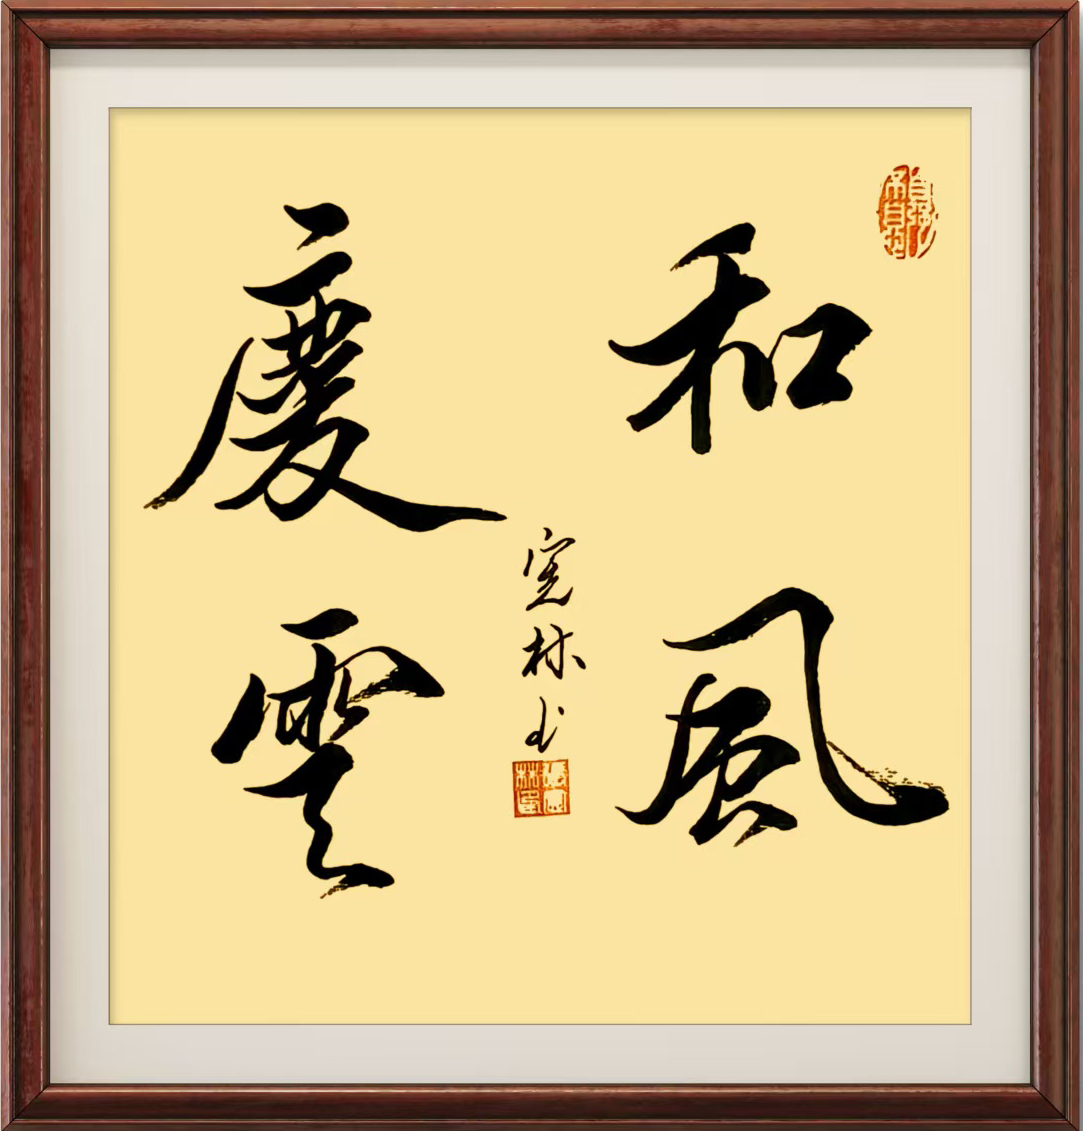 和風
慶雲
宪林书